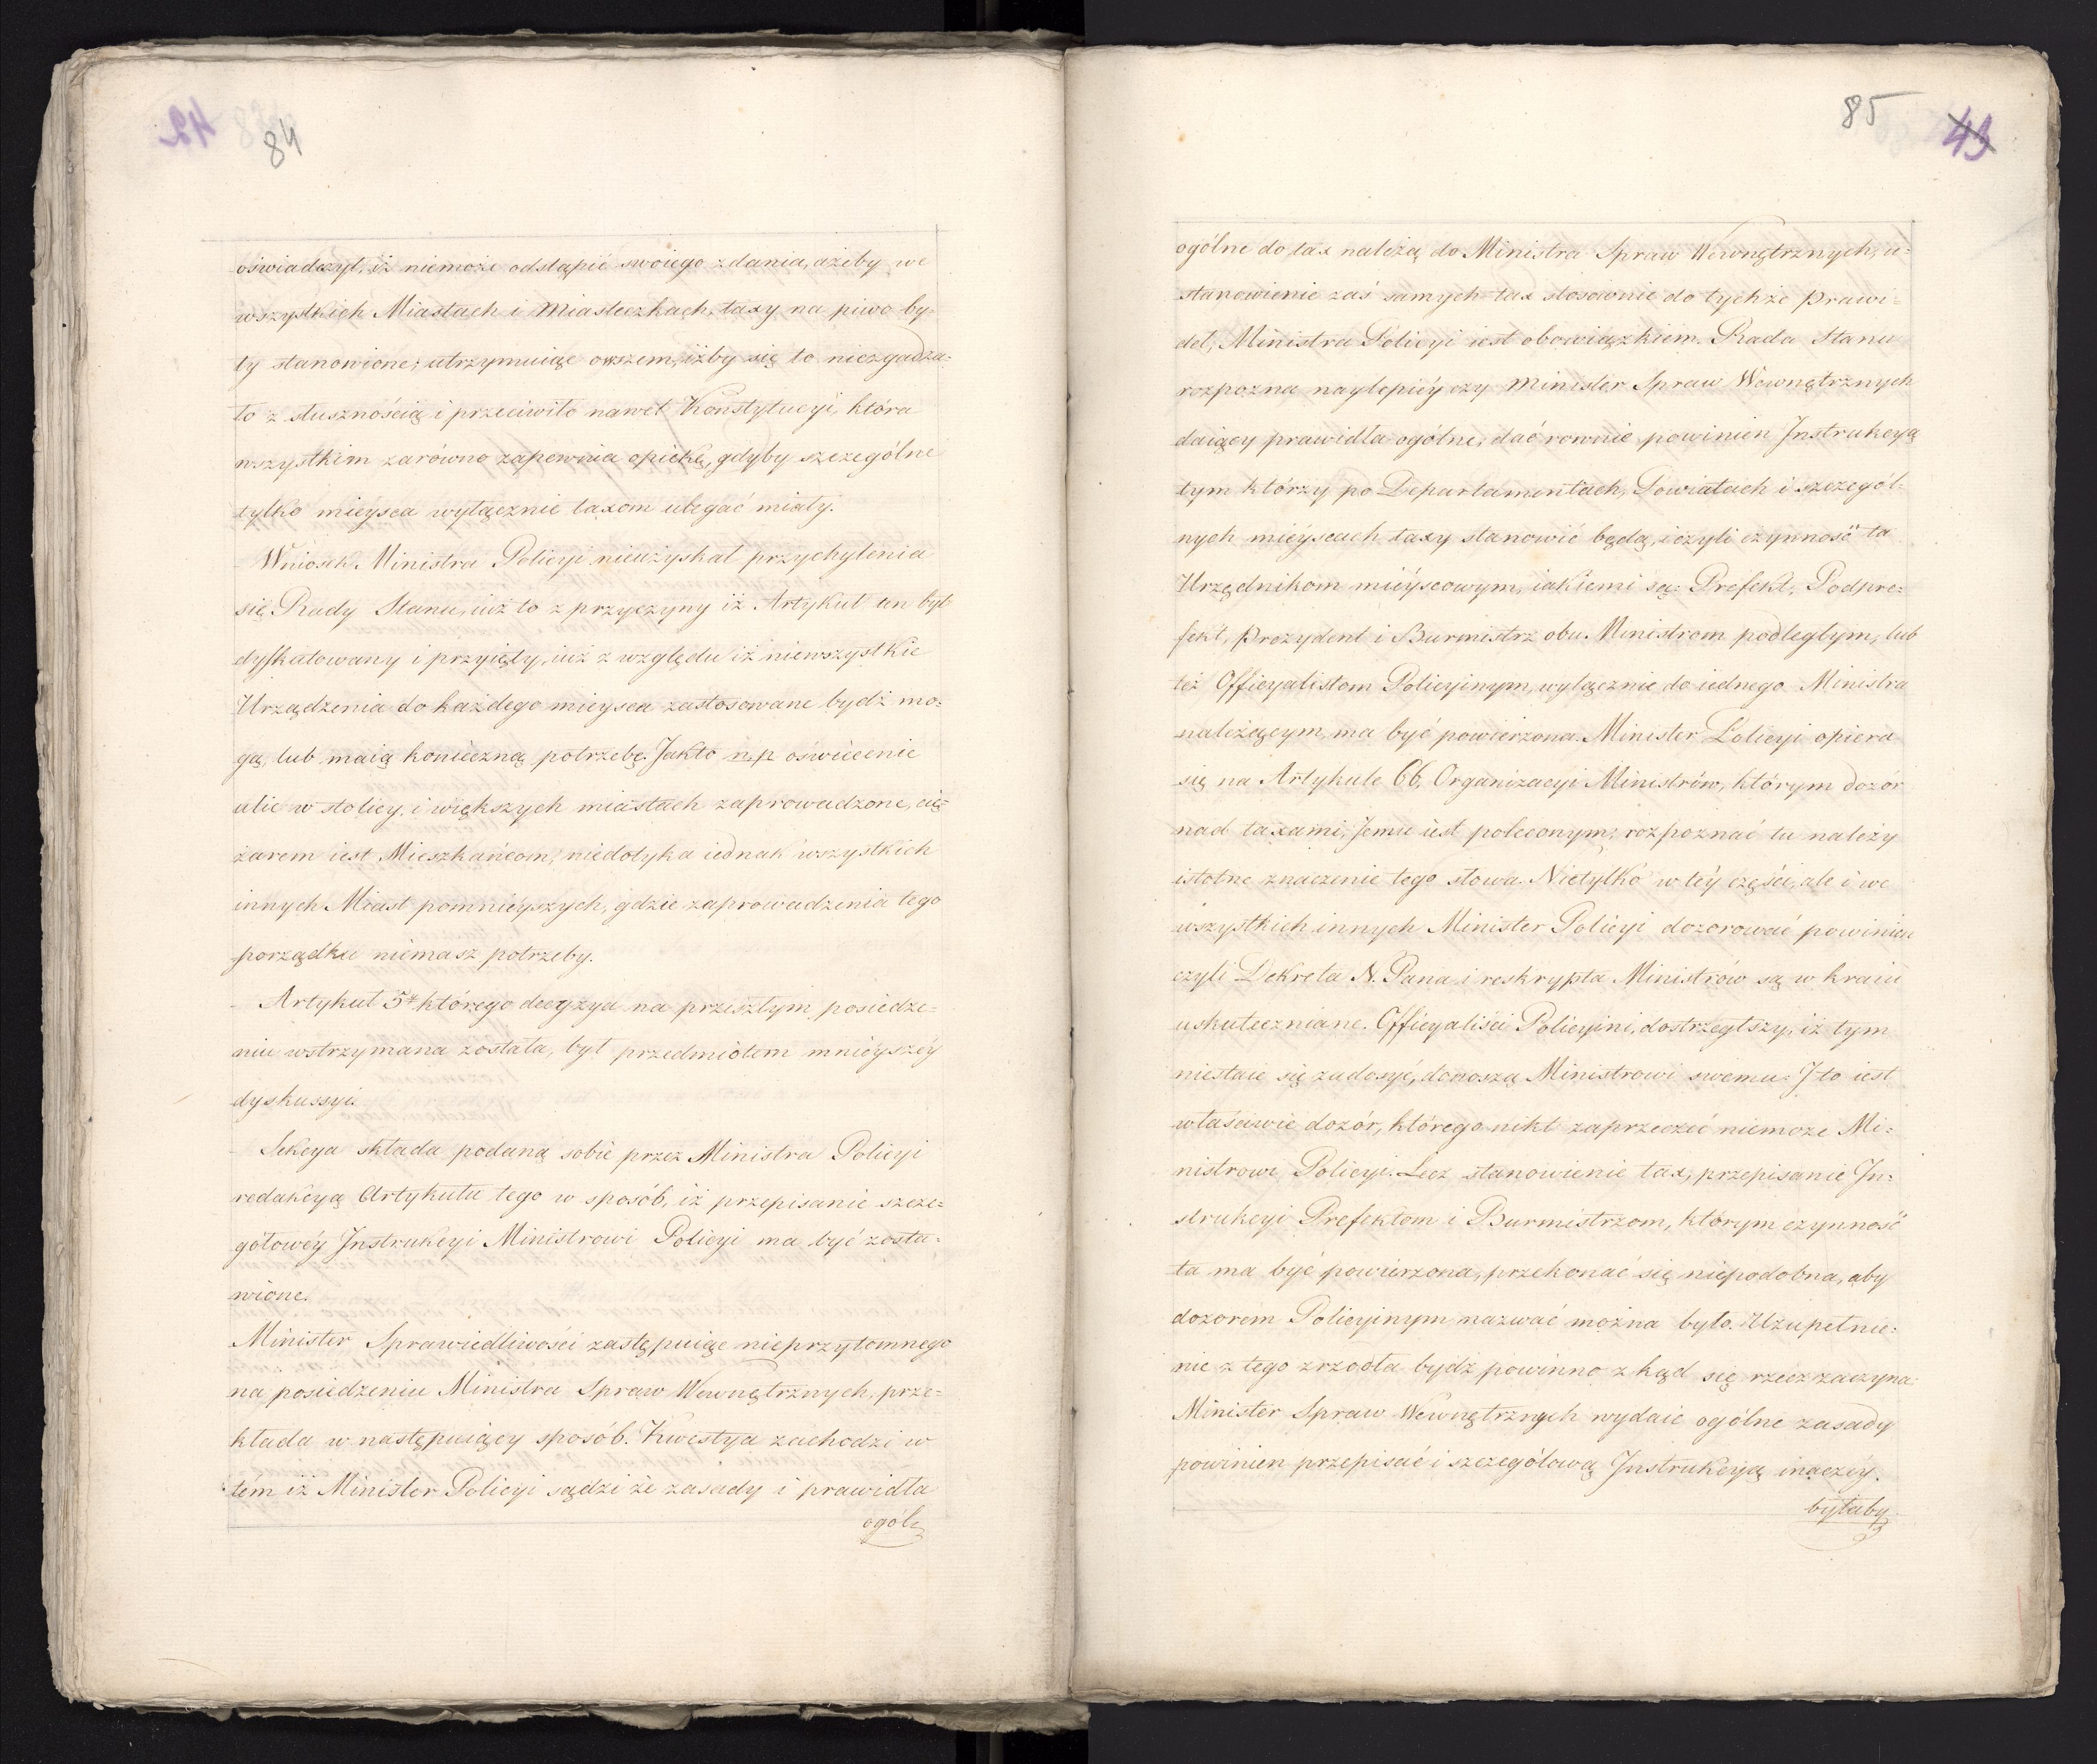 84
oświadczył, iż niemoże odstąpić swoiego zdania, ażeby we
wszystkich Miastach i Miasteczkach, taxy na piwo by-
ły stanowione; utrzymuiąc owszem, iżby się to niezgadza-
ło z słusznością i przeciwiło nawet Konstytucyi, która
wszystkim zarówno zapewnia opiekę, gdyby szczególne
tylko mieysca wyłącznie taxom ulegać miały.
Wniosek Ministra Policyi nieużyskał przychylenia
się Rady Stanu, iuż to z przyczyny iż Artykuł ten był
dyskutowany i przyięty, iuż z względu iż niewszystkie
Urządzenia do każdego mieysca zastosowane bydź mo-
gą, lub maią konieczną potrzebę. Jakto n.p. oświecenie
ulic w stolicy, i większych miastach zaprowadzone, cię-
żarem iest Mieszkańcom, niedotyka iednak wszystkich
innych Miast pomnieyszych, gdzie zaprowadzenia tego
porządku niemasz potrzeby.
Artykuł 5ty którego decyzya na przeszłym posiedze-
niu wstrzymana została, był przedmiotem mnieyszéy
dyskussyi.
Sekcya składa podaną sobie przez Ministra Policyi
redakcyą Artykułu tego w sposób, iż przepisanie szcze-
gółowéy Instrukcyi Ministrowi Policyi ma być zosta-
wione.
Minister Sprawiedliwości zastępuiąc nieprzytomnego
na posiedzeniu Ministra Spraw Wewnętrznych, prze-
kłada w następuiący sposób. Kwestya zachodzi w
tém iż Minister Policyi sądzi że zasady i prawidła
ogól.
85
43
ogólne do tax należą do Ministra Spraw Wewnętrznych, u-
stanowienie zaś samych tax stosownie do tychże prawi-
deł, Ministra Policyi iest obowiązkiem. Rada Stanu
rozpozna naylepiéy czy Minister Spraw Wewnętrznych
daiący prawidła ogólne, dać rownie powinien Instrukcyą
tym którzy po Departamentach, Powiatach i szczegól-
nych mieyscach taxy stanowić będą, i czyli czynność ta
Urzędnikom mieyscowym, iakiemi są: Prefekt, Podpre-
fekt, Prezydent i Burmistrz obu Ministrom podległym, lub
też Officyalistom Policyinym, wyłącznie do iednego Ministra
należącym, ma być powierzona. Minister Policyi opiera
się na Artykule 66. Organizacyi Ministrów, którym dozór
nad taxami, Jemu iest poleconym; rozpoznać tu należy
istotne znaczenie tego słowa. Nietylko w téy części, ale i we
wszystkich innych Minister Policyi dozorować powinien
czyli Dekreta N. Pana i reskrypta Ministrów są w kraiu
uskuteczniane. Officyaliści Policyini, dostrzegłszy, iż tym
niestaie się zadosyć, donoszą Ministrowi swemu: I to iest
właściwie dozór, którego nikt zaprzeczeć niemoże Mi-
nistrowi Policyi. Lecz stanowienie tax, przepisanie In-
strukcyi Prefektom i Burmistrzom, którym czynność
ta ma być powierzona, przekonać się niepodobna, aby
dozorem Policyinym nazwać można było. Uzupełnie-
nie z tego zrzodła bydź powinno z kąd się rzecz zaczyna:
Minister Spraw Wewnętrznych wydaie ogólne zasady
powinien przepisać i szczegółową Instrukcyą inaczéy.
byłaby